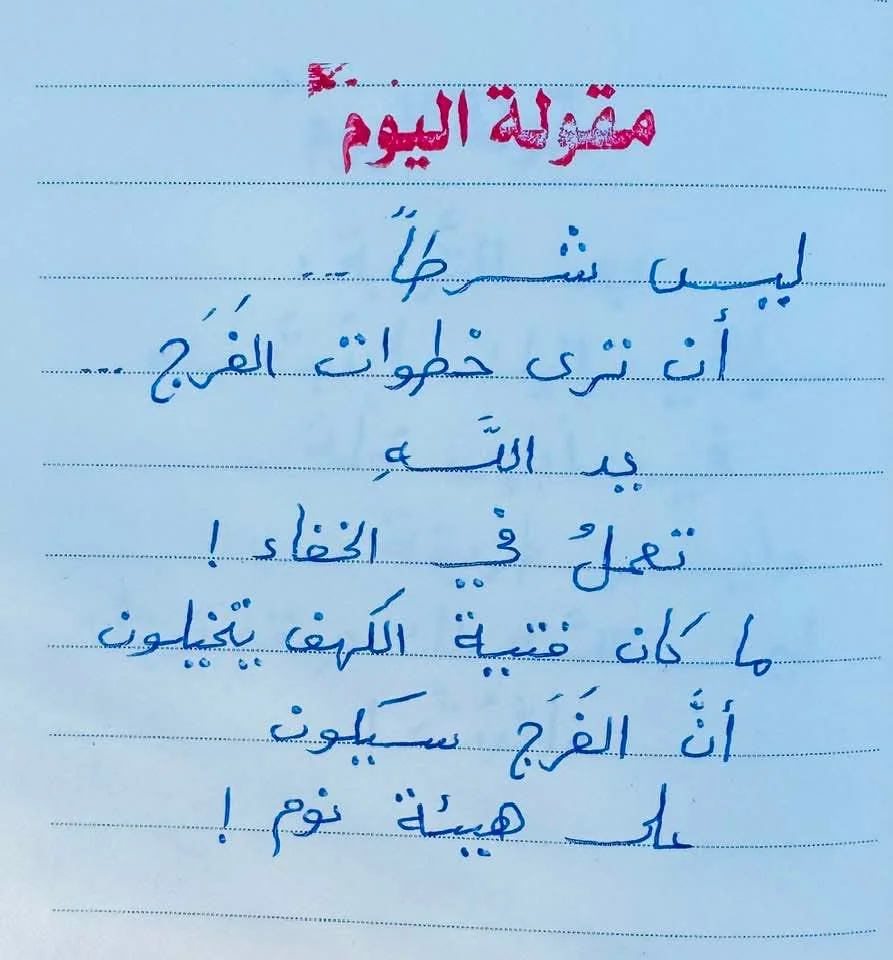 مقولة اليوم
ليس شرطاً ...
أن نرى خطوات الفَرَج ...
يد اللَّهِ
تعملُ في الخفاء !
ما كَان فتية الكَهف يتخيلون
أنَّ الفَرَج سيَكون
على هيئة نوم !